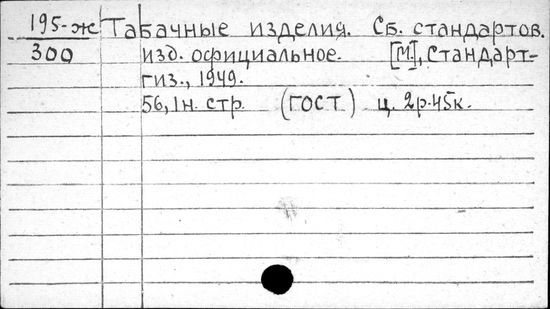 195-ж Табачные изделия. Сб. стандартов.
300 изд. официальное. [М.], Стандарт-
гиз., 1949.
56, 1 н. стр. (ГОСТ) ц. 2р.45к.